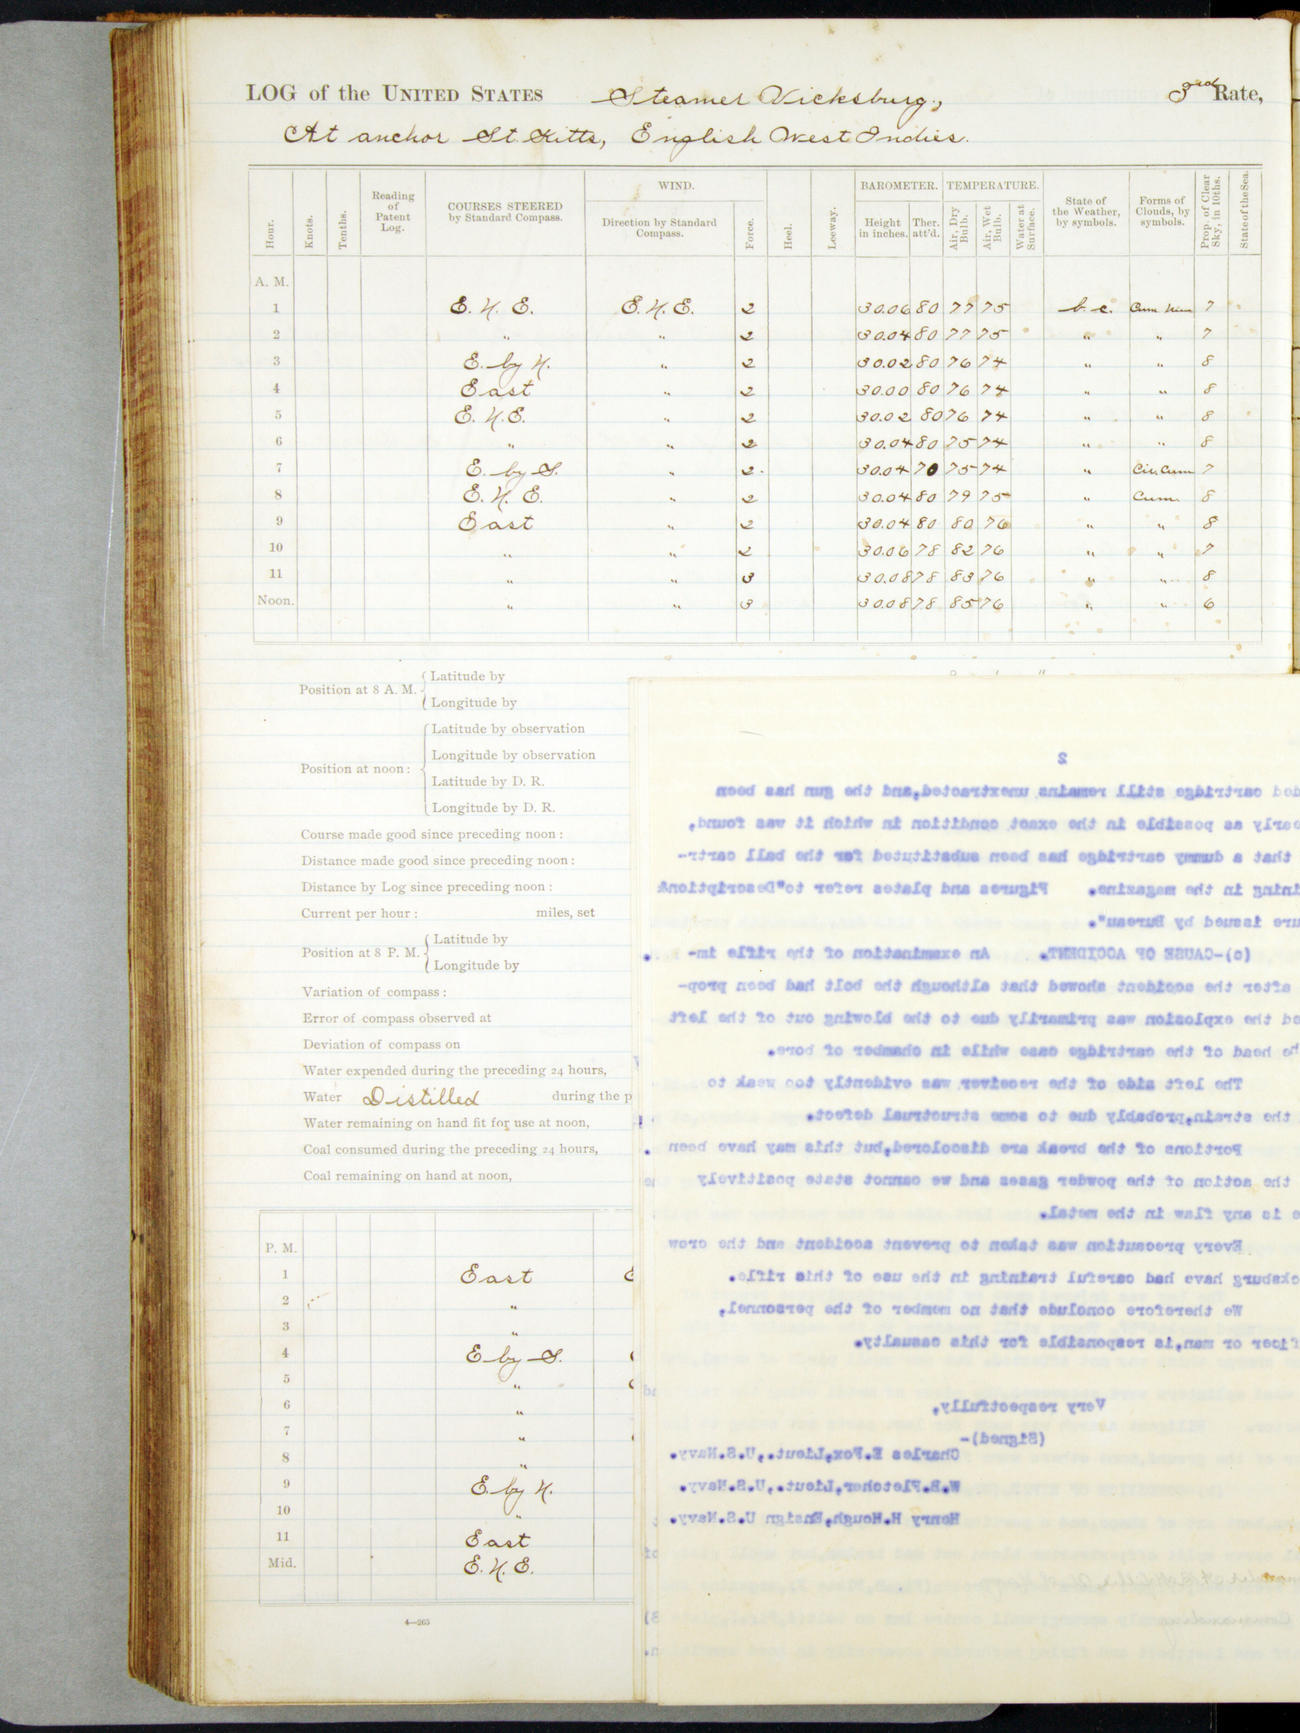 LOG of the UNITED STATES Steamer Vicksburg, 3rd Rate,
At anchor St. Kitts, English West Indies.
Hour. Knots. Tenths. Reading of Patent Log. COURSES STEERED by Standard Compass. WIND. Direction by Standard Compass. Force. Heel. Leeway. BAROMETER. Height in inches. Ther. att'd. TEMPERATURE. Air, Dry Bulb. Air, Wet Bulb. Water at Surface. State of the Weather, by symbols. Forms of Clouds, by symbols. Prop. of Clear Sky, in 10ths. State of the Sea.
A. M.
1 E. N. E. E. N. E. 2 30.06 80 77 75 b. c. Cum Nim 7
2 " " 2 30.04 80 77 75 " " 7
3 E. by N. " 2 30.02 80 76 74 " " 8
4 East " 2 30.00 80 76 74 " " 8
5 E. N. E. " 2 30.02 80 76 74 " " 8
6 " " 2 30.04 80 75 74 " " 8
7 E. by S. " 2 30.04 70 75 74 " Cir. Cum 7
8 E. N. E. " 2 30.04 80 79 75 " Cum. 8
9 East " 2 30.04 80 80 76 " " 8
10 " " 2 30.06 78 82 76 " " 7
11 " " 3 30.08 78 83 76 " " 8
Noon. " " 3 30.08 78 85 76 " " 6
Position at 8 A. M. Latitude by
Longitude by
Position at noon: Latitude by observation
Longitude by observation
Latitude by D. R.
Longitude by D. R.
Course made good since preceding noon:
Distance made good since preceding noon:
Distance by Log since preceding noon:
Current per hour: miles, set
Position at 8 P. M. Latitude by
Longitude by
Variation of compass:
Error of compass observed at
Deviation of compass on
Water expended during the preceding 24 hours,
Water Distilled during the p
Water remaining on hand fit for use at noon,
Coal consumed during the preceding 24 hours,
Coal remaining on hand at noon,
P. M.
1 East E
2 "
3 "
4 E by S.
5 "
6 "
7 "
8 "
9 E. by N.
10 "
11 East
Mid. E. N. E.
4—265
2
ded cartridge still remains unextracted,and the gun has been
early as possible in the exact condition in which it was found,
that a dummy cartridge has been substituted for the ball cartr-
ining in the magazine. Figures and plates refer to"Description&
ure issued by Bureau".
(c)-CAUSE OF ACCIDENT. An examination of the rifle im-
after the accident showed that although the bolt had been prop-
ed the explosion was primarily due to the blowing out of the left
he head of the cartridge case while in chamber of bore.
The left side of the receiver was evidently too weak to
the strain,probably due to some structrual defect.
Portions of the break are discolored,but this may have been
the action of the powder gases and we cannot state positively
e is any flaw in the metal.
Every precaution was taken to prevent accident and the crew
cksburg have had careful training in the use of this rifle.
We therefore conclude that no member of the personnel,
ficer or man,is responsible for this casualty.
Very respectfully,
(Signed)-
Charles E.Fox,Lieut.,U.S.Navy.
W.B.Fletcher,Lieut.,U.S.Navy.
Henry H.Hough,Ensign U.S.Navy.